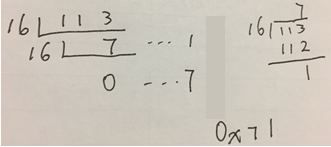 16 113
16 7 ... 1
0 ... 7
7
16 113
112
1
0x71